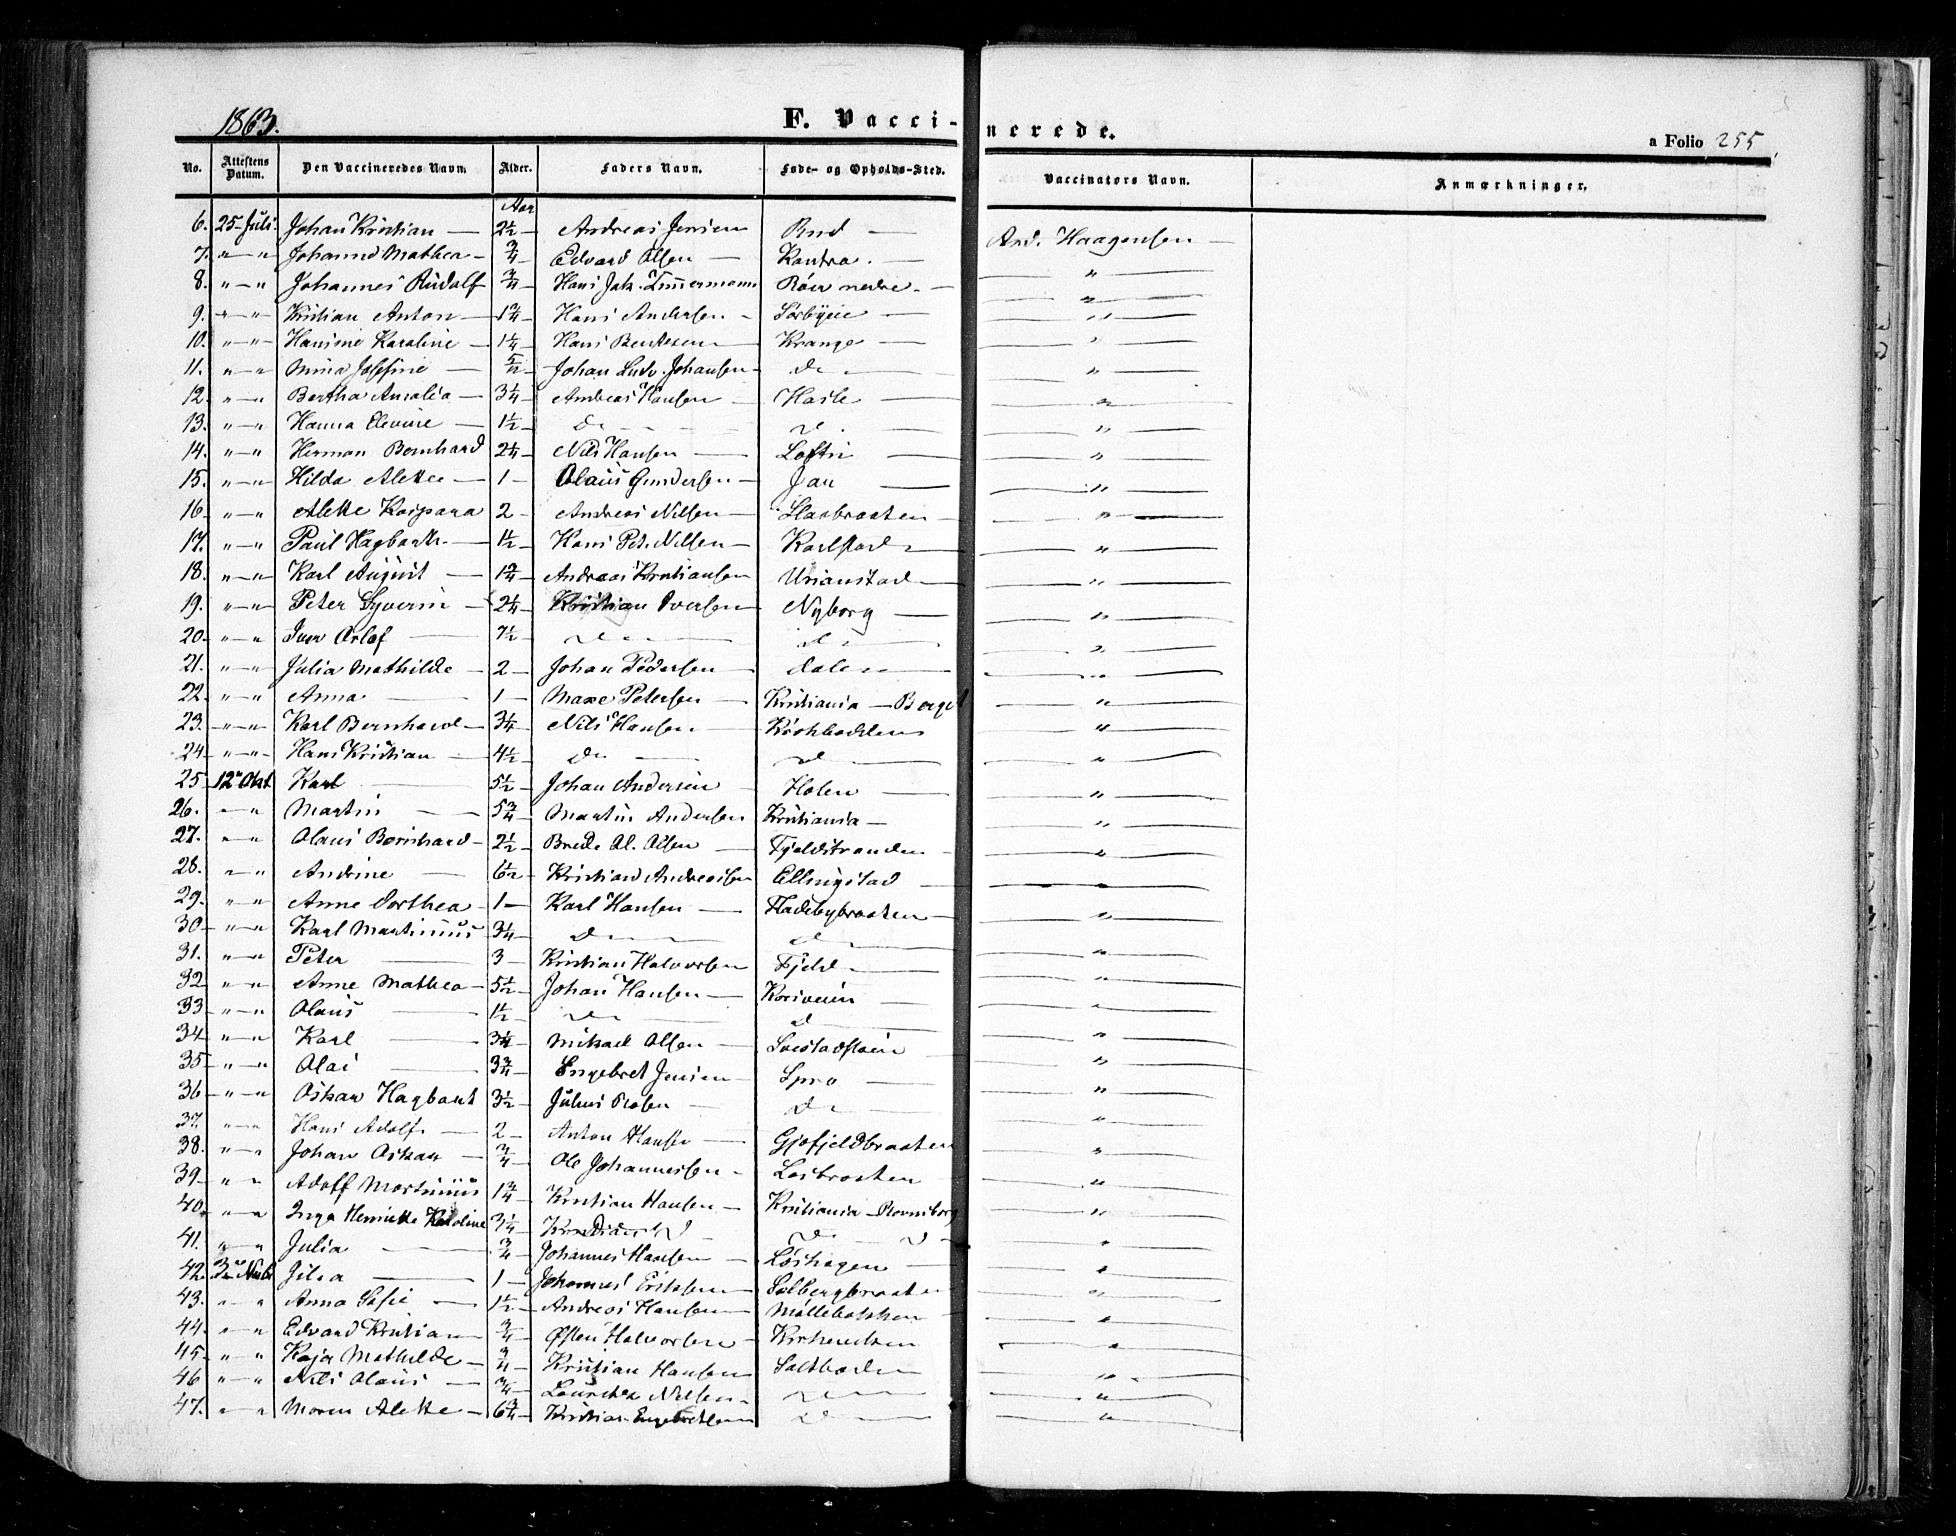 1863.
F. Vacci-nerede.
a Folio 255
No. Attestens Datum. Den Vaccineredes Navn. Alder. Faders Navn. Føde- og Opholds-Sted. Vaccinators Navn. Anmærkninger.
Aar
6. 25 Juli Johan Kristian — 2½ Andreas Jensen Rud — And. Haagensen —
7. " — " Johanne Mathea — ¾ Edvard Olsen — Kantra. — "
8. " — " Johannes Rudolf ¾ Hans Jak. Zimmermann Røer nedre. — "
9. " — " Kristian Anton — 1¾ Hans Andersen — Sørbyeie — "
10. " — " Hansine Karoline — 1¼ Hans Bentsen — Krange — "
11. " — " Mina Josefine — Johan Ludv. Johansen — do — "
12. " — " Bertha Amalia — 3¼ Andreas Hansen — Hasle — "
13. " — " Hanna Elevine — 1½ do — do — "
14. " — " Herman Bernhard 2¼ Nils Hansen — "
15. " — " Hilda Alette — 1 — Olaus Gundersen — "
16. " — " Alette Kaspara 2 — Andreas Nilsen — "
17. " — " Paul Hagbarth. — 1½ Hans Pet. Nilsen — Karlstad — "
18. " — " Karl August — 1¾ Andreas Kristiansen Urianstad — "
19. " — " Peter Syverin — 2¼ Kristian Iversen Nyborg — "
20. " — " Iver Orlaf — 7½ do — do — "
21. " — " Julia Mathilde — 2 — Johan Pedersen — Dalen — "
22. " — " Anna — 1 — Petersen — Kristiania — "
23. " — " Karl Bernhard — 3¼ Nils Hansen — "
24. " — " Hans Kristian — 4½ do — do — "
25. 12 Okt Karl — 5½ Johan Andersen — Holen — "
26. " — " Martin — 5¾ Martin Andersen Kristiania — "
27. " — " Olaus Bernhard — 2½ Brede Ol. Olsen — Fjeldstranden — "
28. " — " Andrine — 6½ Kristian Andreassen Ellingstad — "
29. " — " Anne Dorthea — 1 — Karl Hansen — Fladebybraaten — "
30. " — " Karl Martinius 3¼ do — do — "
31. " — " Peter — 3 — Kristian Halvorsen Fjeld — "
32. " — " Anne Mathea — 5½ Johan Hansen — "
33. " — " Olaus — 1½ do — do — "
34. " — " Karl — 3¼ Mikael Olsen — "
35. " — " Olai — 3¾ Engebret Jensen — Spro — "
36. " — " Oskar Hagbart 3½ Julius — do — "
37. " — " Hans Adolf — 2 — Anton Hansen — Gjøfjeldbraaten "
38. " — " Johan Oskar — ¾ Ole Johannessen — Løsbraaten — "
39. " — " Adolf Martinius 1¾ Kristian Hansen — Kristiania — "
40. " — " Inga Henriette Karoline 3¼ do "
41. " — " Julia — ¾ Johannes Hansen — Løshagen — "
42. — 1 — Johannes Eriksen — Solbergbraaten "
43. " — " Anna Sofie — 1½ Andreas Hansen — Møllebakken "
44. " — " Edvard Kristian — ¾ Østen Halvorsen — "
45. " — " Kaja Mathilde — ¾ Kristian Hansen "
46 " — " Nils Olaus — ¾ Nilsen — do — "
47. " — " Maren Alette — 6¾ Kristian Engebretsen do — "